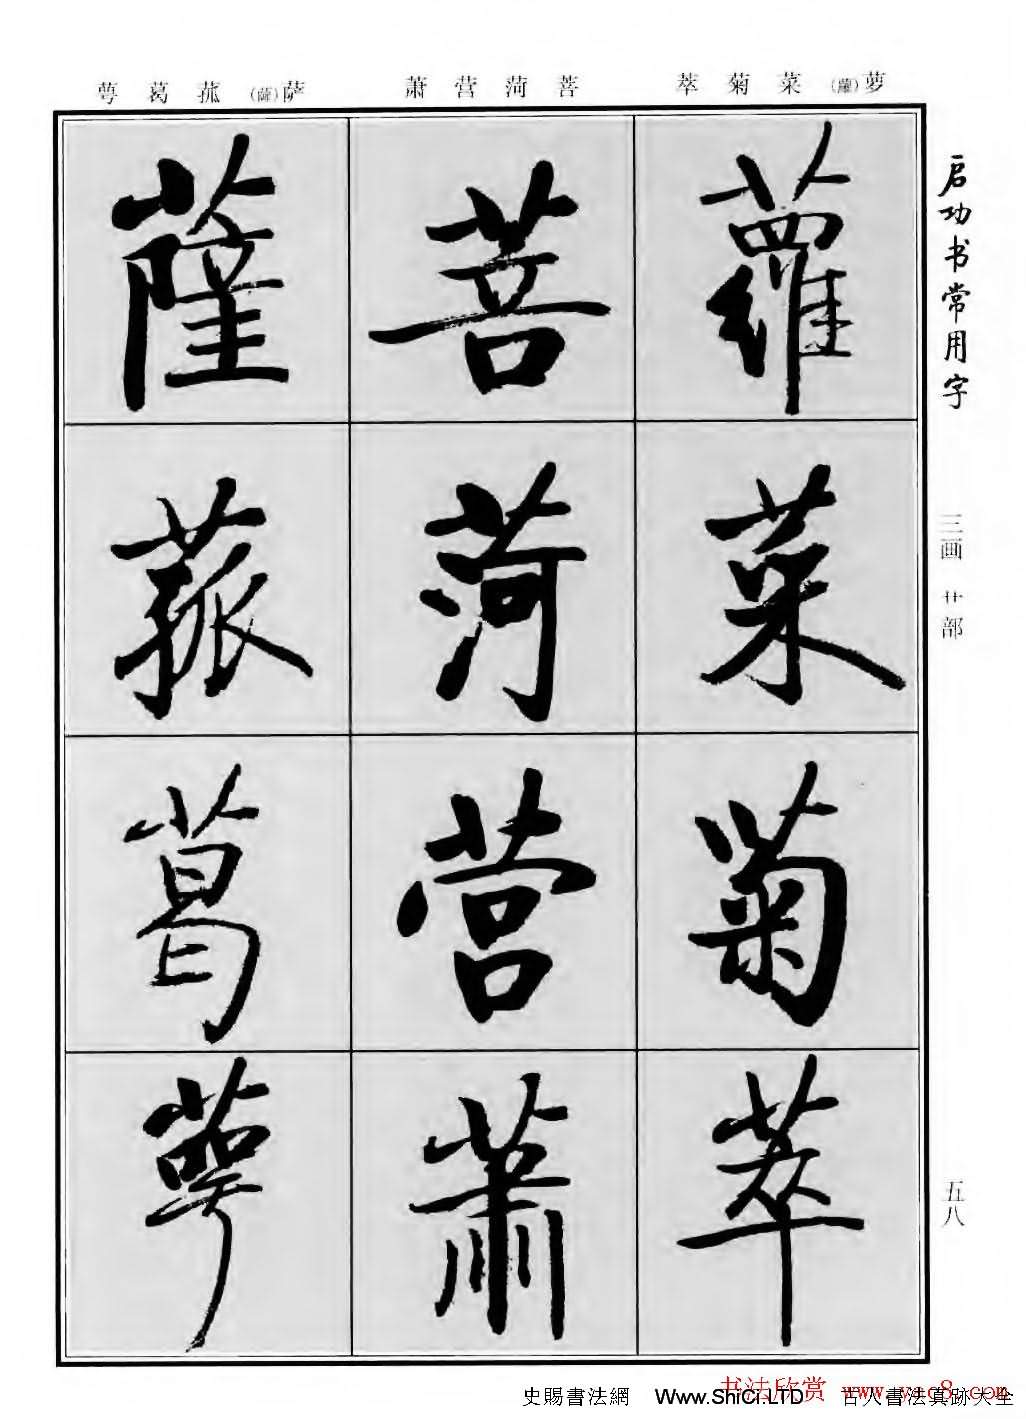 萼 葛 菰 (薩)萨 萧 营 菏 菩 萃 菊 菜 (蘿)萝
启功书常用字
三画 艹部
五八
蘿
菜
菊
萃
菩
菏
营
蕭
薩
菰
葛
萼
史賜書法網 Www.ShiCi.LTD 古人書法真跡大全
书法欣赏